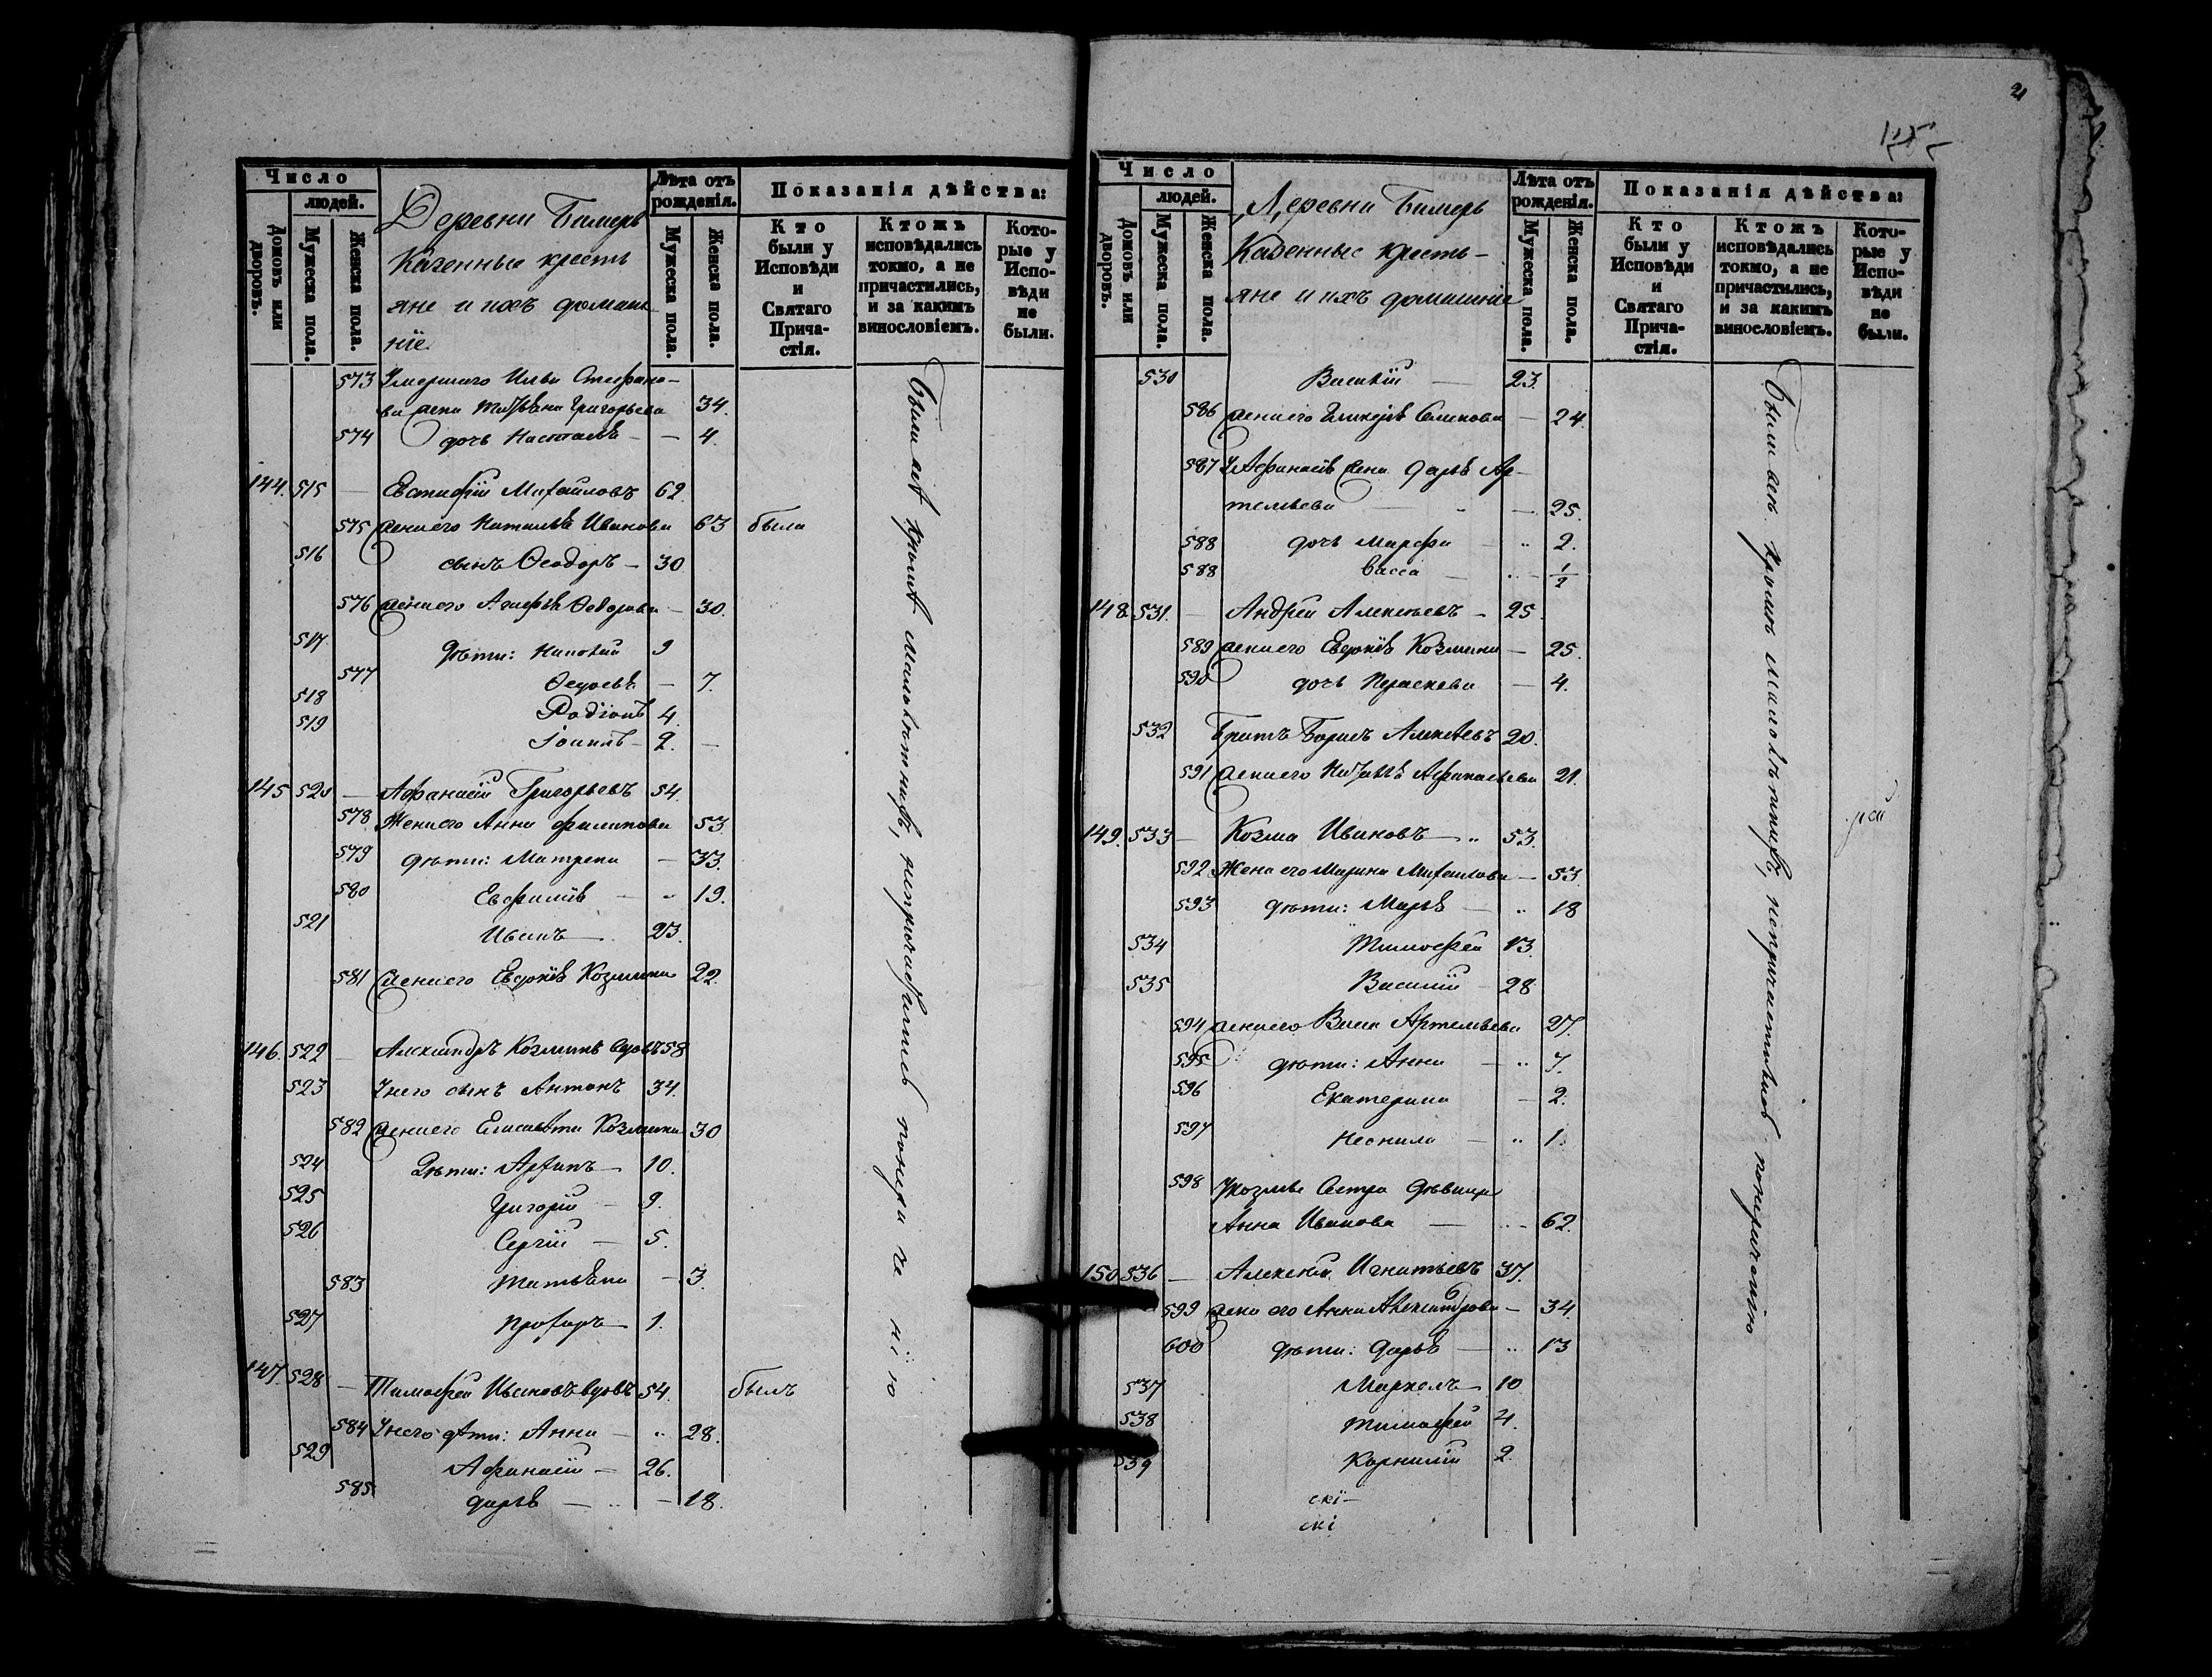 Число
людей.
Домовъ или дворовъ.
Мужеска пола.
Женска пола.
Деревни Бимеръ
Казенные кресть
яне и ихъ домаш
ніе
Лѣта отъ рожденія.
Мужеска пола.
Женска пола.
Показанія дѣйства:
Кто были у Исповѣди и Святаго Прича-стія.
Ктожъ исповѣдались токмо, а не причастились, и за какимъ винословіемъ.
Кото-рые у Испо-вѣди не были.
573 Умершаго Ильи Стефано-
ва жена Татьяна Григорьева 34.
574 дочь Настасья — — 4.
144. 515 — Евстифій Михайловъ 62.
575 жена его Наталья Иванова 63 была
516 сынъ Ѳеодоръ — 30
576 жена его Агафья Ѳедорова — 30.
517 дѣти: 9
577 Ѳедосья — 7.
518 Родіонъ 4.
519 Іоаннъ — 2. —
145 520 — Афанасій Григорьевъ 54.
578 Жена его Анна Филипова 53.
579 дѣти: Матрена — 33.
580 Евфимія — „ 19.
521 Иванъ — 23.
581 жена его Евдокія Козмина 22.
146. 522 — Александръ Козминъ вдовъ 58
523 У него сынъ Антонъ 34.
582 жена его Елисавета Козмина 30
524 Дѣти: Архипъ — 10.
525 Григорій — 9.
526 Сергій — 5.
583 Татьяна — 3.
527 Прохоръ — 1.
147. 528 — Тимофей Ивановъ вдовъ 54. былъ
584 У него дѣти: Анна — „ 28.
529 Афанасій — 26.
585 Дарья — „ — 18.
Были всѣ кромѣ малолѣтнихъ, непричастились понерачению
21
Число
людей.
Домовъ или дворовъ.
Мужеска пола.
Женска пола.
Деревни Бимеръ
Казенные кресть-
яне и ихъ домашніе
Лѣта отъ рожденія.
Мужеска пола.
Женска пола.
Показанія дѣйства:
Кто были у Исповѣди и Святаго Прича-стія.
Ктожъ исповѣдались токмо, а не причастились, и за какимъ винословіемъ.
Кото-рые у Испо-вѣди не были.
530 Василій — 23.
586 жена его Гликерія Семенова — 24.
587 У Афанасія жена Дарья Ар-
темьева — „ — 25.
588 дочь Марфа — „ 2.
588 Васса — „ — 1/2
148. 531. — Андрей Алексѣевъ — 25.
589 жена его Евдокія Козмина — 25.
590 дочь Параскева — 4.
532 Братъ Борисъ Алексѣевъ 20.
591 жена его Наталья Афанасьева 21.
149. 533 — Козма Ивановъ — „ 53.
592 Жена его Марина Михаилова — 53.
593 дѣти: Марья — „ 18
534 Тимофей 13.
535 Василій — 28
594 жена его Васса Артемьева 27.
595 дѣти: Анна — „ 7.
596 Екатерина — 2.
597 Неонила — „ 1.
598 У Козмы Сестра дѣвица
Анна Иванова — „ — 62.
150 536 — Алексѣй Игнатьевъ 37.
599 жена его Анна Александрова — 34.
600 дѣти: Дарья — „ 13
537 Маркелъ — 10
538 Тимофей 4.
539 Корнилій 2.
скі—
скі
Были всѣ кромѣ малолѣтнихъ, непричастились понерачению